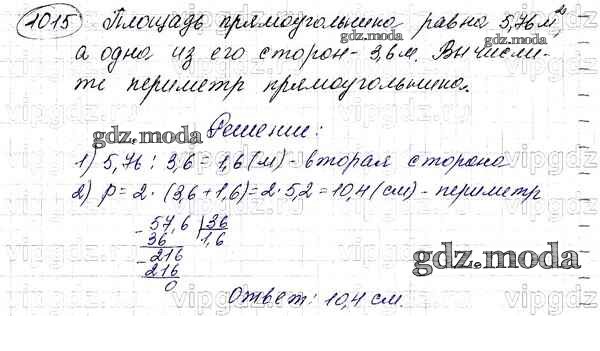 1015 Площадь прямоугольника равна 5,76 м²,
а одна из его сторон - 3,6 м. Вычисли-
те периметр прямоугольника.
Решение:
1) 5,76 : 3,6 = 1,6 (м) - вторая сторона
2) P = 2 · (3,6 + 1,6) = 2 · 5,2 = 10,4 (см) - периметр
- 57,6 | 36
36 | 1,6
- 216
216
0
Ответ: 10,4 см.
gdz.moda
gdz.moda
gdz.moda
gdz.moda
vipgdz.com